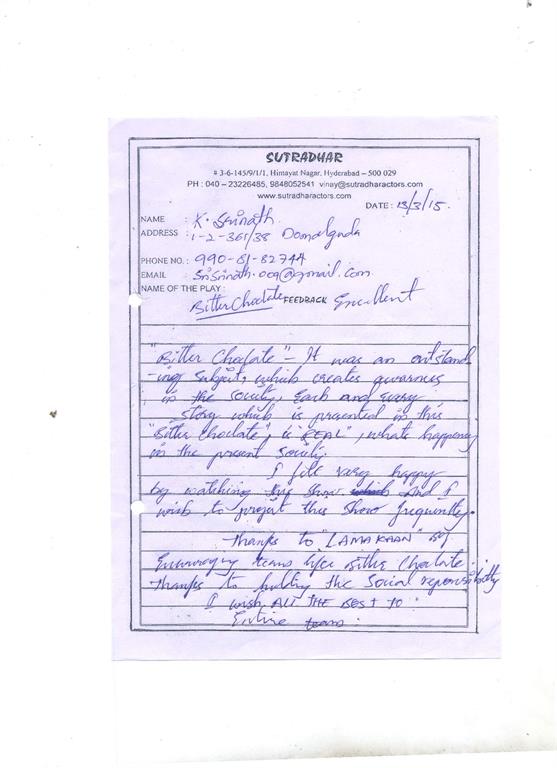 SUTRADHAR
# 3-6-145/9/1/1, Himayat Nagar, Hyderabad – 500 029
PH : 040 – 23226485, 9848052541 vinay@sutradharactors.com
www.sutradharactors.com
DATE : 13/3/15.
NAME : K. Srinath.
ADDRESS : 1-2-361/38 Domalguda
PHONE NO. : 990-81-82744
EMAIL
NAME OF THE PLAY :
Bitter Choclate FEEDBACK Excellent
"Bitter Choclate" – It was an outstand
-ing subject, which creates awarness
in the society. Each and every
story which is presented in this
"Bitter Choclate", is "REAL", whats happening
in the present society.
I fill very happy
by watching this show. which And I
wish to project this show frequently.
Thanks to "LAMAKAAN" By
Encouraging teams like Bitter Choclate.
Thanks to holding the social
I wish ALL THE BEST TO
Entire team.